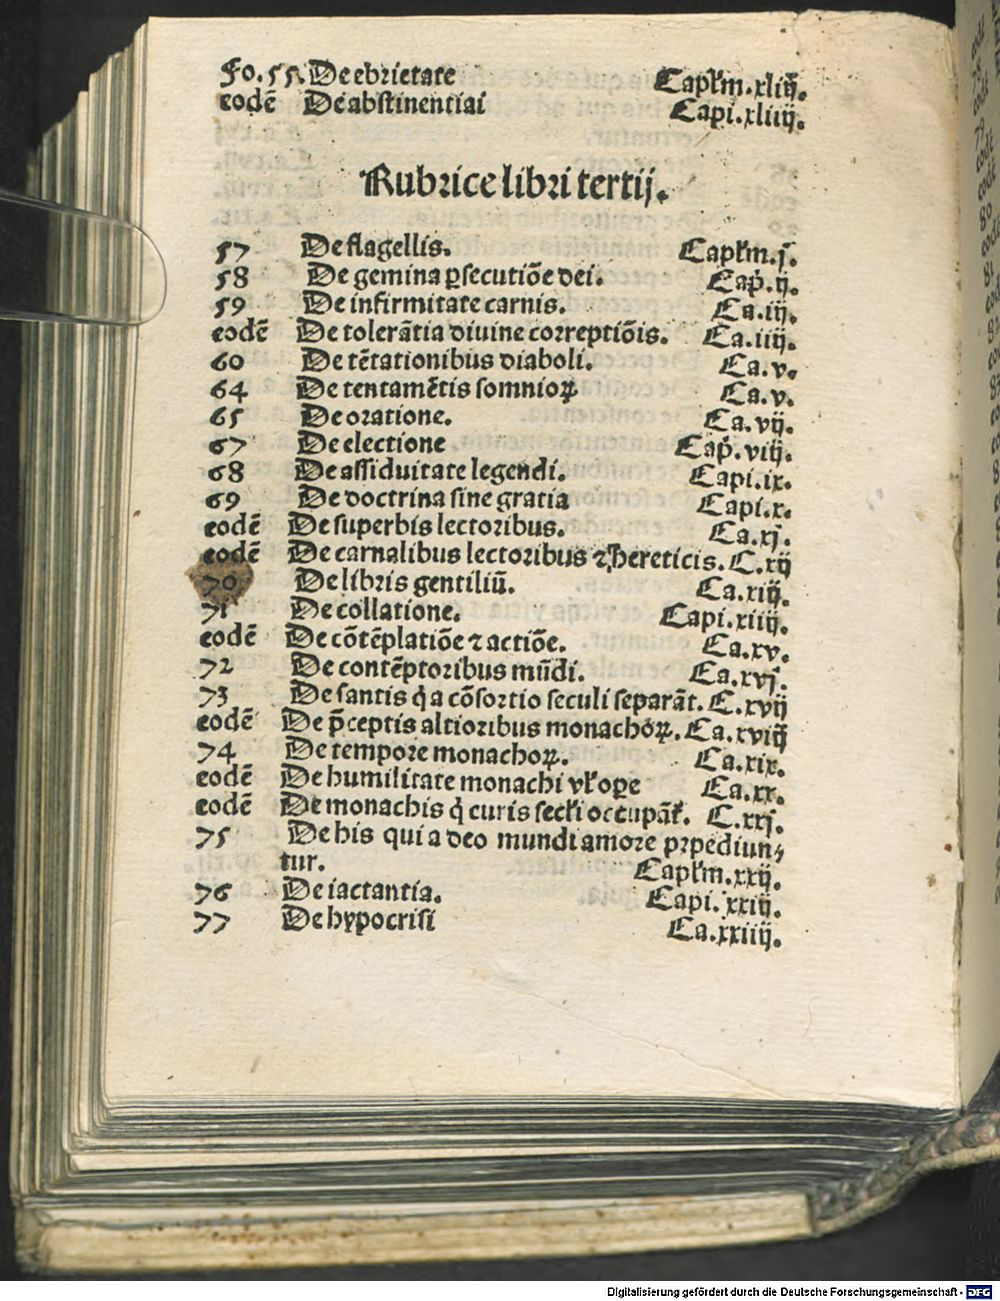 Fo.55. De ebrietate Capłm.xliij.
eodē De abstinentiai Capi.xliiij.
Rubrice libri tertij.
57 De flagellis. Capłm.j.
58 De gemina ꝑsecutiōe dei. Cap̄.ij.
59 De infirmitate carnis. Ca.iij.
eodē De tolerātia diuine correptiōis. Ca.iiij.
60 De tētationibus diaboli. Ca.v.
64 De tentamētis somnioꝝ Ca.v.
65 De oratione. Ca.vij.
67 De electione Cap̄.viij.
68 De assiduitate legendi. Capi.ix.
69 De doctrina sine gratia Capi.x.
eodē De superbis lectoribus. Ca.xj.
eodē De carnalibus lectoribus ⁊ hereticis. C.xij
70 De libris gentiliū. Ca.xiij.
71 De collatione. Capi.xiiij.
eodē De cōtēplatiōe ⁊ actiōe. Ca.xv.
72 De contēptoribus mūdi. Ca.xvj.
73 De santis q̇ a cōsortio seculi separāt. C.xvij
eodē De p̄ceptis altioribus monachoꝝ. Ca.xviij
74 De tempore monachoꝝ. Ca.xix.
eodē De humilitate monachi vł oꝑe Ca.xx.
eodē De monachis q̇ curis secłi occupāt̄. C.xxj.
75 De his qui a deo mundi amore prpediun⸗
tur. Capłm.xxij.
76 De iactantia. Capi.xxiij.
77 De hypocrisi Ca.xxiiij.
78
eodē
79
eodē
eodē
80
eodē
81
Digitalisierung gefördert durch die Deutsche Forschungsgemeinschaft - DFG